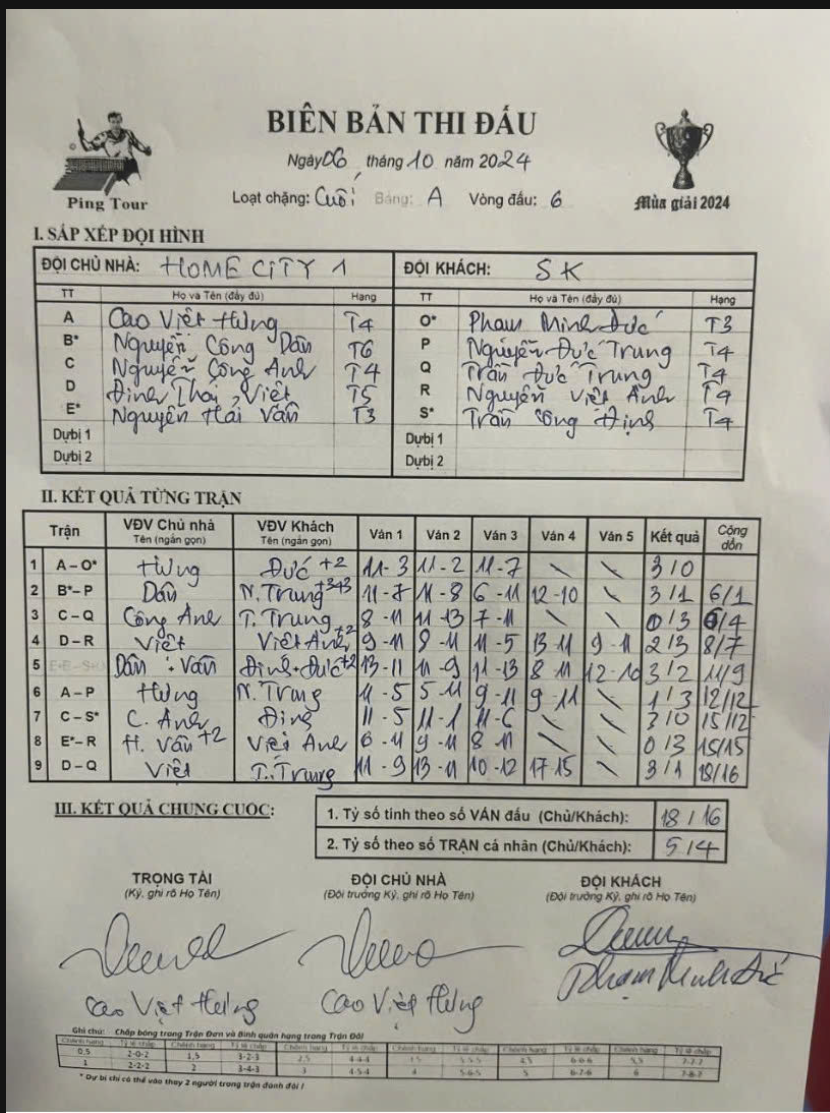 BIÊN BẢN THI ĐẤU
Ngày 06, tháng 10 năm 2024
Ping Tour
Loạt chặng: Cuối Bảng: A Vòng đấu: 6
Mùa giải 2024
I. SẮP XẾP ĐỘI HÌNH
ĐỘI CHỦ NHÀ: HOME CITY 1 ĐỘI KHÁCH: SK
TT Họ và Tên (đầy đủ) Hạng TT Họ và Tên (đầy đủ) Hạng
A Cao Việt Hưng T4 O* Phạm Minh Đức T3
B* Nguyễn Công Dân T6 P Nguyễn Đức Trung T4
C Nguyễn Công Anh T4 Q Trần Đức Trung T4
D Đinh Thái Việt T5 R Nguyễn Việt Anh T4
E* Nguyễn Hải Vân T3 S* Trần Công Định T4
Dự bị 1 Dự bị 1
Dự bị 2 Dự bị 2
II. KẾT QUẢ TỪNG TRẬN
Trận VĐV Chủ nhà Tên (ngắn gọn) VĐV Khách Tên (ngắn gọn) Ván 1 Ván 2 Ván 3 Ván 4 Ván 5 Kết quả Cộng dồn
1 A – O* Hưng Đức +2 11-3 11-2 11-7 \ \ 3/0
2 B* – P Dân N. Trung +343 11-7 11-8 6-11 12-10 \ 3/1 6/1
3 C – Q Công Anh T. Trung 8-11 11-13 7-11 \ \ 0/3 6/4
4 D – R Việt Việt Anh +2 9-11 8-11 11-5 13-11 9-11 2/3 8/7
5 Dân + Vân Định + Đức +2 13-11 11-9 11-13 8-11 12-10 3/2 11/9
6 A – P Hưng N. Trung 11-5 5-11 9-11 9-11 \ 1/3 12/12
7 C – S* C. Anh Định 11-5 11-1 11-6 \ \ 3/0 15/12
8 E* – R H. Vân +2 Việt Anh 6-11 9-11 8-11 \ \ 0/3 15/15
9 D – Q Việt T. Trung 11-9 13-11 10-12 17-15 \ 3/1 18/16
III. KẾT QUẢ CHUNG CUỘC:
1. Tỷ số tính theo số VÁN đấu (Chủ/Khách): 18/16
2. Tỷ số theo số TRẬN cá nhân (Chủ/Khách): 5/4
TRỌNG TÀI ĐỘI CHỦ NHÀ ĐỘI KHÁCH
(Ký, ghi rõ Họ Tên) (Đội trưởng Ký, ghi rõ Họ Tên) (Đội trưởng Ký, ghi rõ Họ Tên)
Cao Việt Hưng Cao Việt Hưng Phạm Minh Đức
Ghi chú: Chấp bóng trong Trận Đơn và Bình quân hạng trong Trận Đôi
Chênh hạng Tỷ lệ chấp Chênh hạng Tỷ lệ chấp Chênh hạng Tỷ lệ chấp Chênh hạng Tỷ lệ chấp Chênh hạng Tỷ lệ chấp Chênh hạng Tỷ lệ chấp
0,5 2-0-2 1,5 3-2-3 2,5 4-4-4 3,5 5-5-5 4,5 6-6-6 5,5 7-7-7
1 2-2-2 2 3-4-3 3 4-5-4 4 5-6-5 5 6-7-6 6 7-8-7
* Dự bị chỉ có thể vào thay 2 người trong trận đánh đôi !